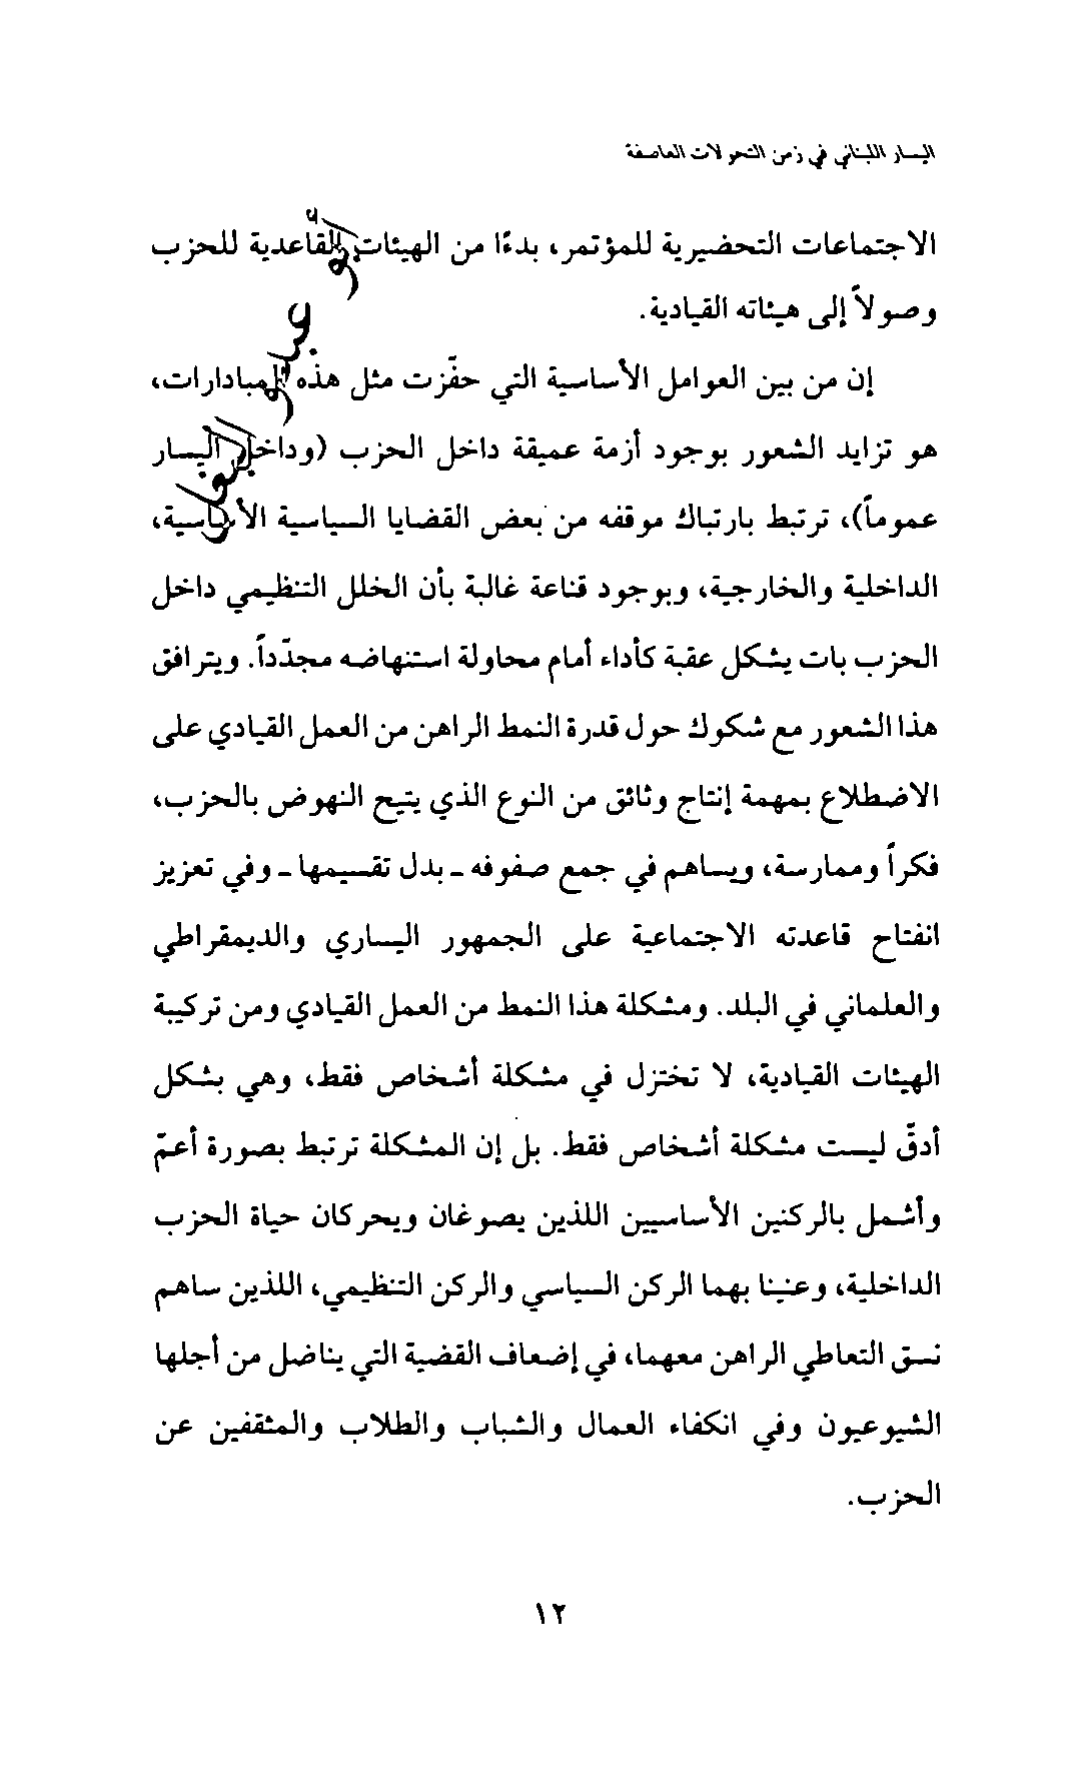 اليسار اللبناني في زمن التحولات العاصفة
الاجتماعات التحضيرية للمؤتمر، بدءًا من الهيئات القاعدية للحزب
وصولاً إلى هيئاته القيادية.
إن من بين العوامل الأساسية التي حفّزت مثل هذه المبادارات،
هو تزايد الشعور بوجود أزمة عميقة داخل الحزب (وداخل اليسار
عموماً)، ترتبط بارتباك موقفه من بعض القضايا السياسية الأساسية،
الداخلية والخارجية، وبوجود قناعة غالبة بأن الخلل التنظيمي داخل
الحزب بات يشكل عقبة كأداء أمام محاولة استنهاضه مجدّداً. ويترافق
هذا الشعور مع شكوك حول قدرة النمط الراهن من العمل القيادي على
الاضطلاع بمهمة إنتاج وثائق من النوع الذي يتيح النهوض بالحزب،
فكراً وممارسة، ويساهم في جمع صفوفه ـ بدل تقسيمها ـ وفي تعزيز
انفتاح قاعدته الاجتماعية على الجمهور اليساري والديمقراطي
والعلماني في البلد. ومشكلة هذا النمط من العمل القيادي ومن تركيبة
الهيئات القيادية، لا تختزل في مشكلة أشخاص فقط، وهي بشكل
أدقّ ليست مشكلة أشخاص فقط. بل إن المشكلة ترتبط بصورة أعمّ
وأشمل بالركنين الأساسيين اللذين يصوغان ويحركان حياة الحزب
الداخلية، وعنينا بهما الركن السياسي والركن التنظيمي، اللذين ساهم
نسق التعاطي الراهن معهما، في إضعاف القضية التي يناضل من أجلها
الشيوعيون وفي انكفاء العمال والشباب والطلاب والمثقفين عن
الحزب.
١٢
أبو عبدو البغل